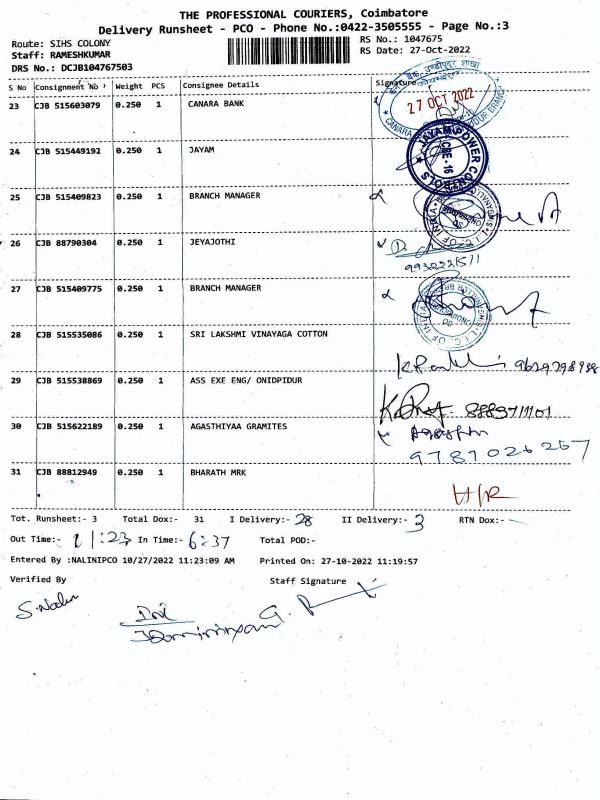 THE PROFESSIONAL COURIERS, Coimbatore
Delivery Runsheet - PCO - Phone No.:0422-3505555 - Page No.:3
Route: SIHS COLONY
RS No.: 1047675
Staff: RAMESHKUMAR
RS Date: 27-Oct-2022
DRS No.: DCJB104767503
S No Consignment No Weight PCS Consignee Details Signature
23 CJB 515603079 0.250 1 CANARA BANK
27 OCT 2022
24 CJB 515449192 0.250 1 JAYAM
JAYAM POWER CONTROLS
CBE - 16
25 CJB 515409823 0.250 1 BRANCH MANAGER
26 CJB 88790304 0.250 1 JEYAJOTHI
27 CJB 515409775 0.250 1 BRANCH MANAGER
28 CJB 515535086 0.250 1 SRI LAKSHMI VINAYAGA COTTON
29 CJB 515538869 0.250 1 ASS EXE ENG/ ONIDPIDUR
8883711101
30 CJB 515622189 0.250 1 AGASTHIYAA GRAMITES
9787026257
31 CJB 88812949 0.250 1 BHARATH MRK
H/R
Tot. Runsheet:- 3 Total Dox:- 31 I Delivery:- 28 II Delivery:- 3 RTN Dox:-
Out Time:- 11:23 In Time:- 6:37 Total POD:-
Entered By :NALINIPCO 10/27/2022 11:23:09 AM Printed On: 27-10-2022 11:19:57
Verified By Staff Signature
S.Nalini